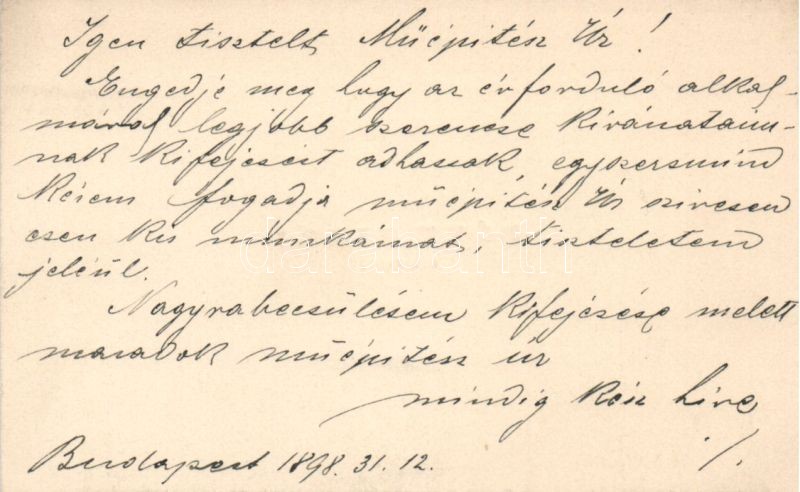 Igen tisztelt Műépitész Úr!
Engedje meg hogy az évforduló alkal-
mával legjobb szerencse kivánataim-
nak kifejezést adhassak, egyszersmind
kérem fogadja műépitész Úr szivesen
ezen kis munkámat, tiszteletem
jeléül.
Nagyrabecsülésem kifejezése melett
maradok műépitész úr
mindig kész hive
./.
Budapest 1898. 31. 12.
darabanth